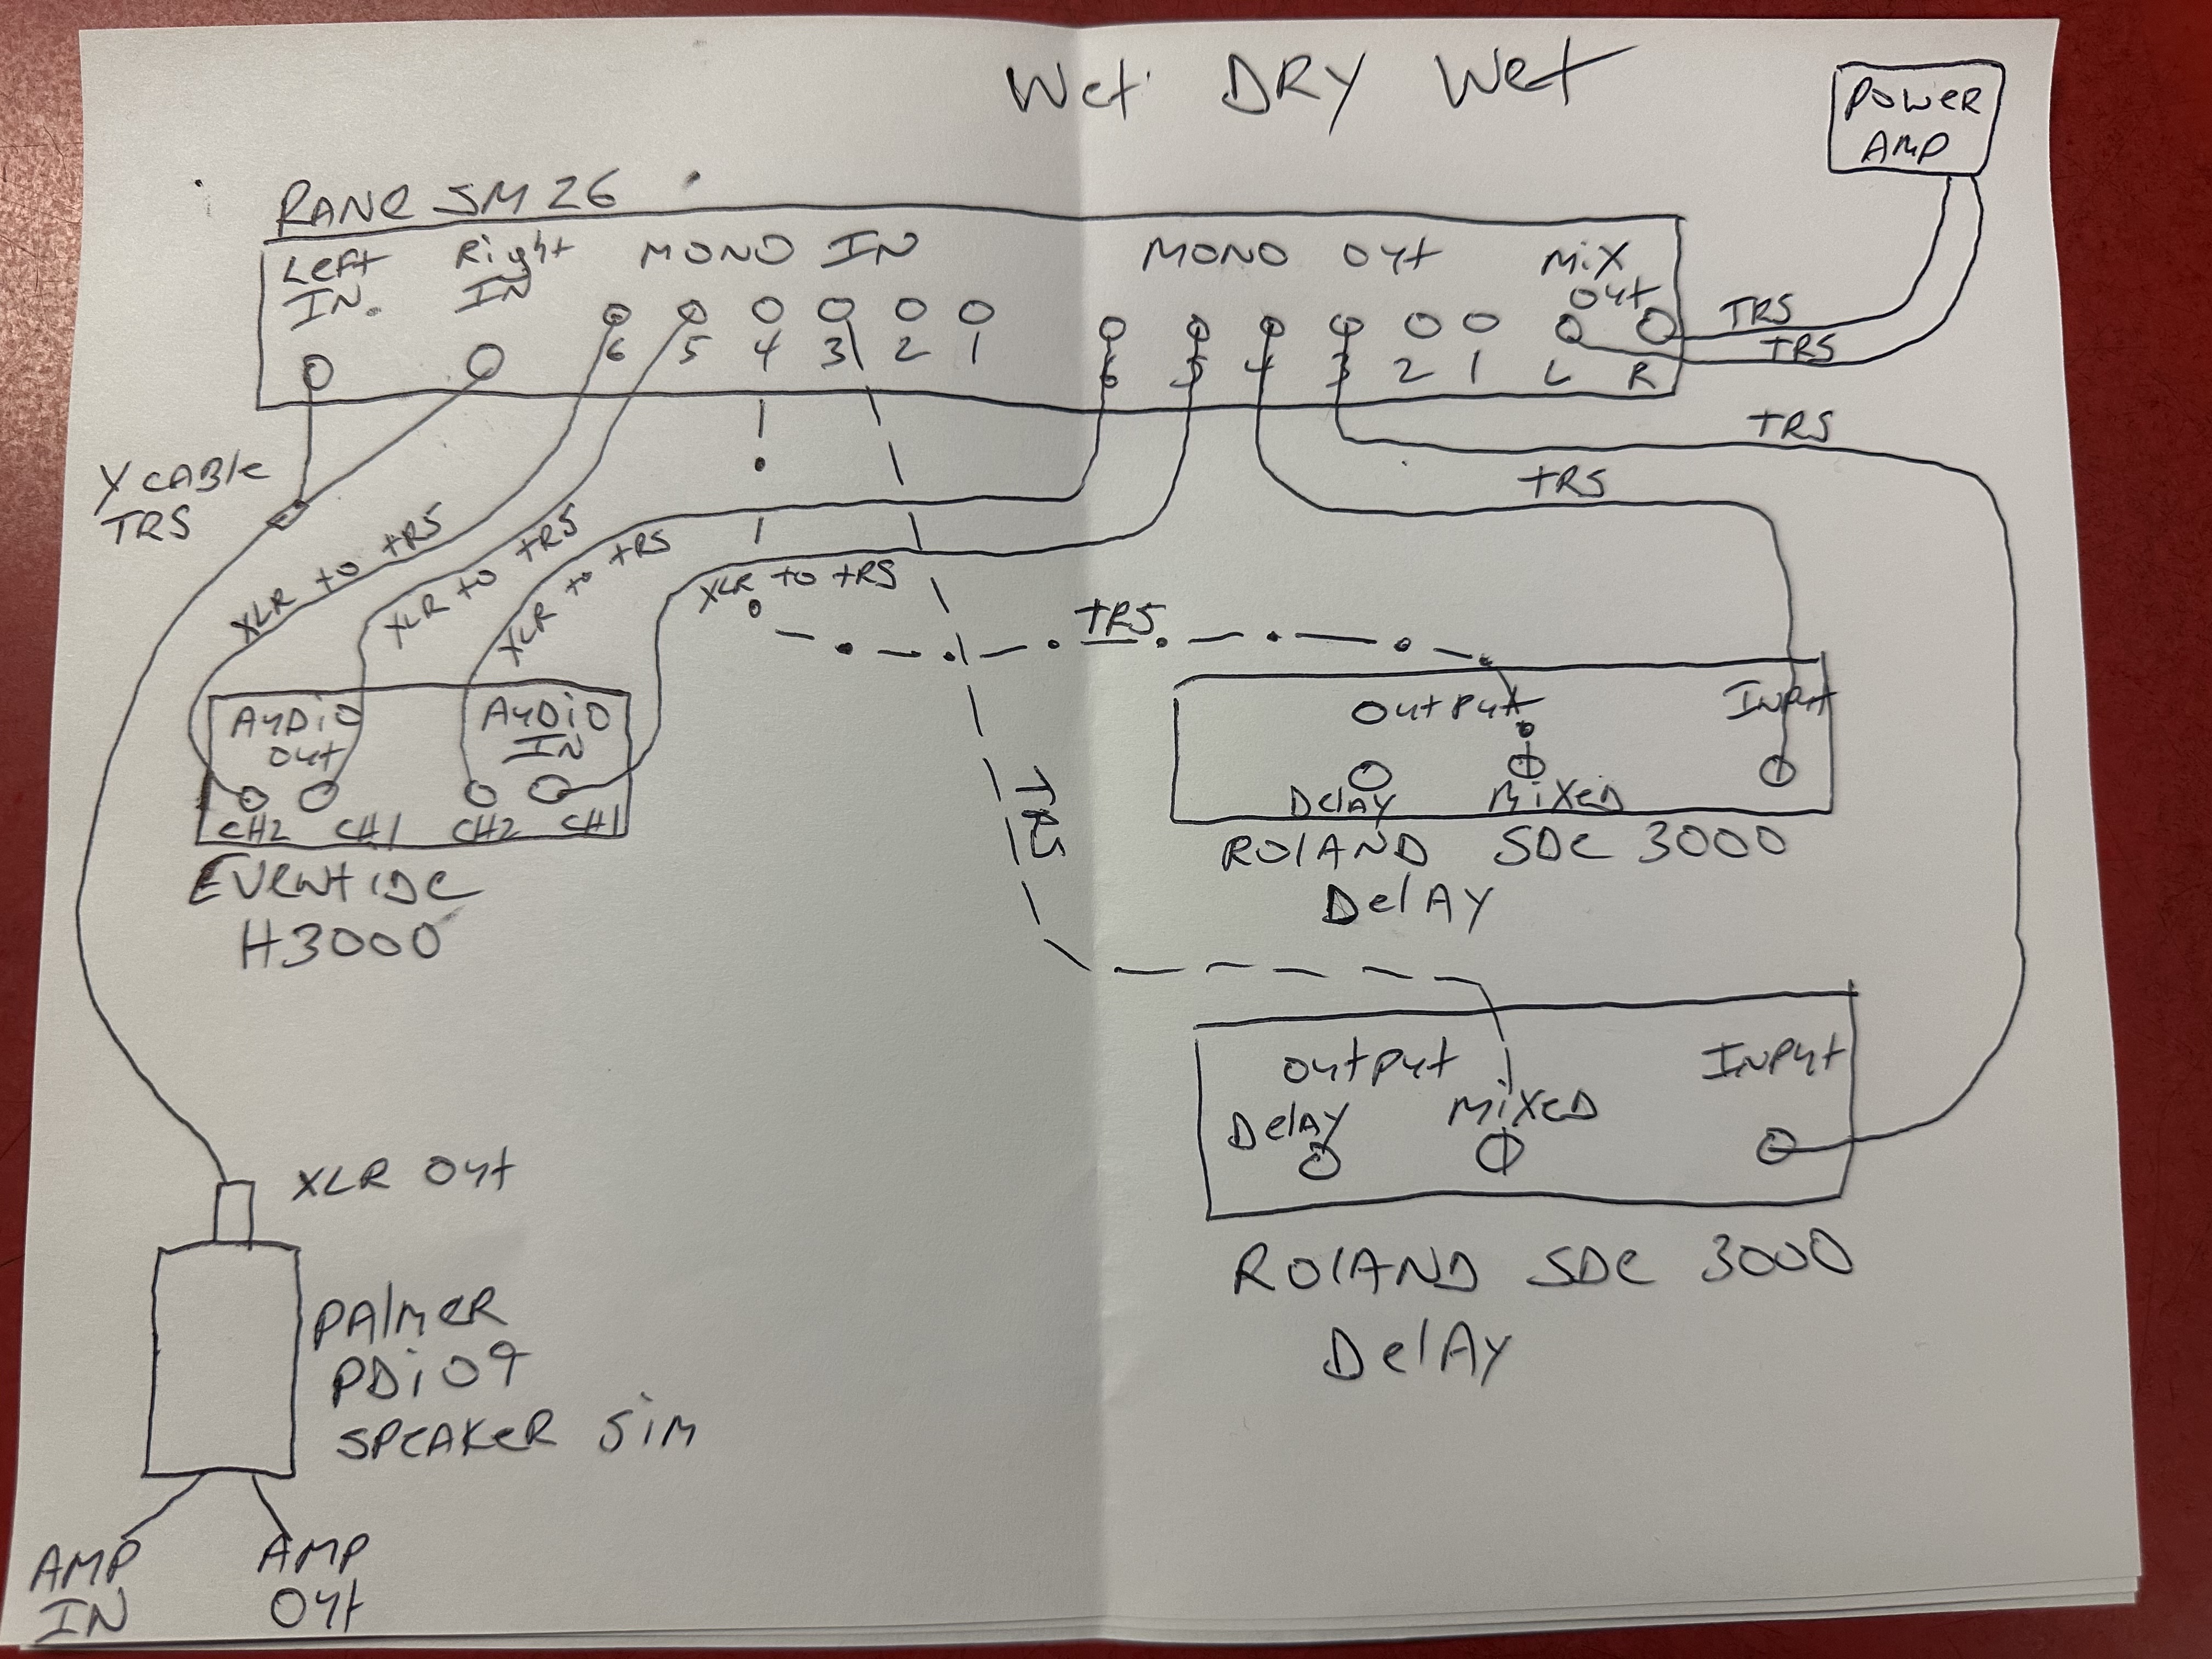 Wet DRY Wet
POWER
AMP
RANE SM 26
Left
IN.
Right
IN
MONO IN
MONO Out
MiX
Out
6 5 4 3 2 1
6 5 4 3 2 1 L R
TRS
TRS
TRS
TRS
Y CABle
TRS
XLR to TRS
XLR to TRS
XLR to TRS
XLR to TRS
TRS
TRS
AUDiO
Out
AUDiO
IN
CH2 CH1 CH2 CH1
EVENTIDE
H3000
Output
Input
Delay
MiXeD
ROlAND SDE 3000
DelAY
Output
Input
DelAY
MiXeD
ROlAND SDE 3000
DelAY
XLR Out
PAlmER
PDi09
SPEAKER SiM
AMP
IN
AMP
Out